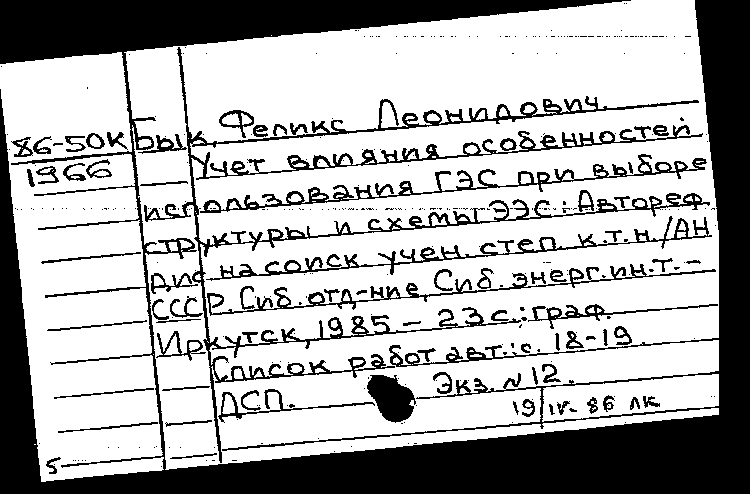 86-50К Бык, Феликс Леонидович.
1966 Учет влияния особенностей
использования ГЭС при выборе
структуры и схемы ЭЭС: Автореф.
дис. на соиск. учен. степ. к.т.н./АН
СССР. Сиб. отд-ние, Сиб. энерг. ин.т. –
Иркутск, 1985 – 23 с.: граф.
Список работ авт.: с. 18-19.
ДСП. Экз. N 12.
19/IV-86 ЛК
5